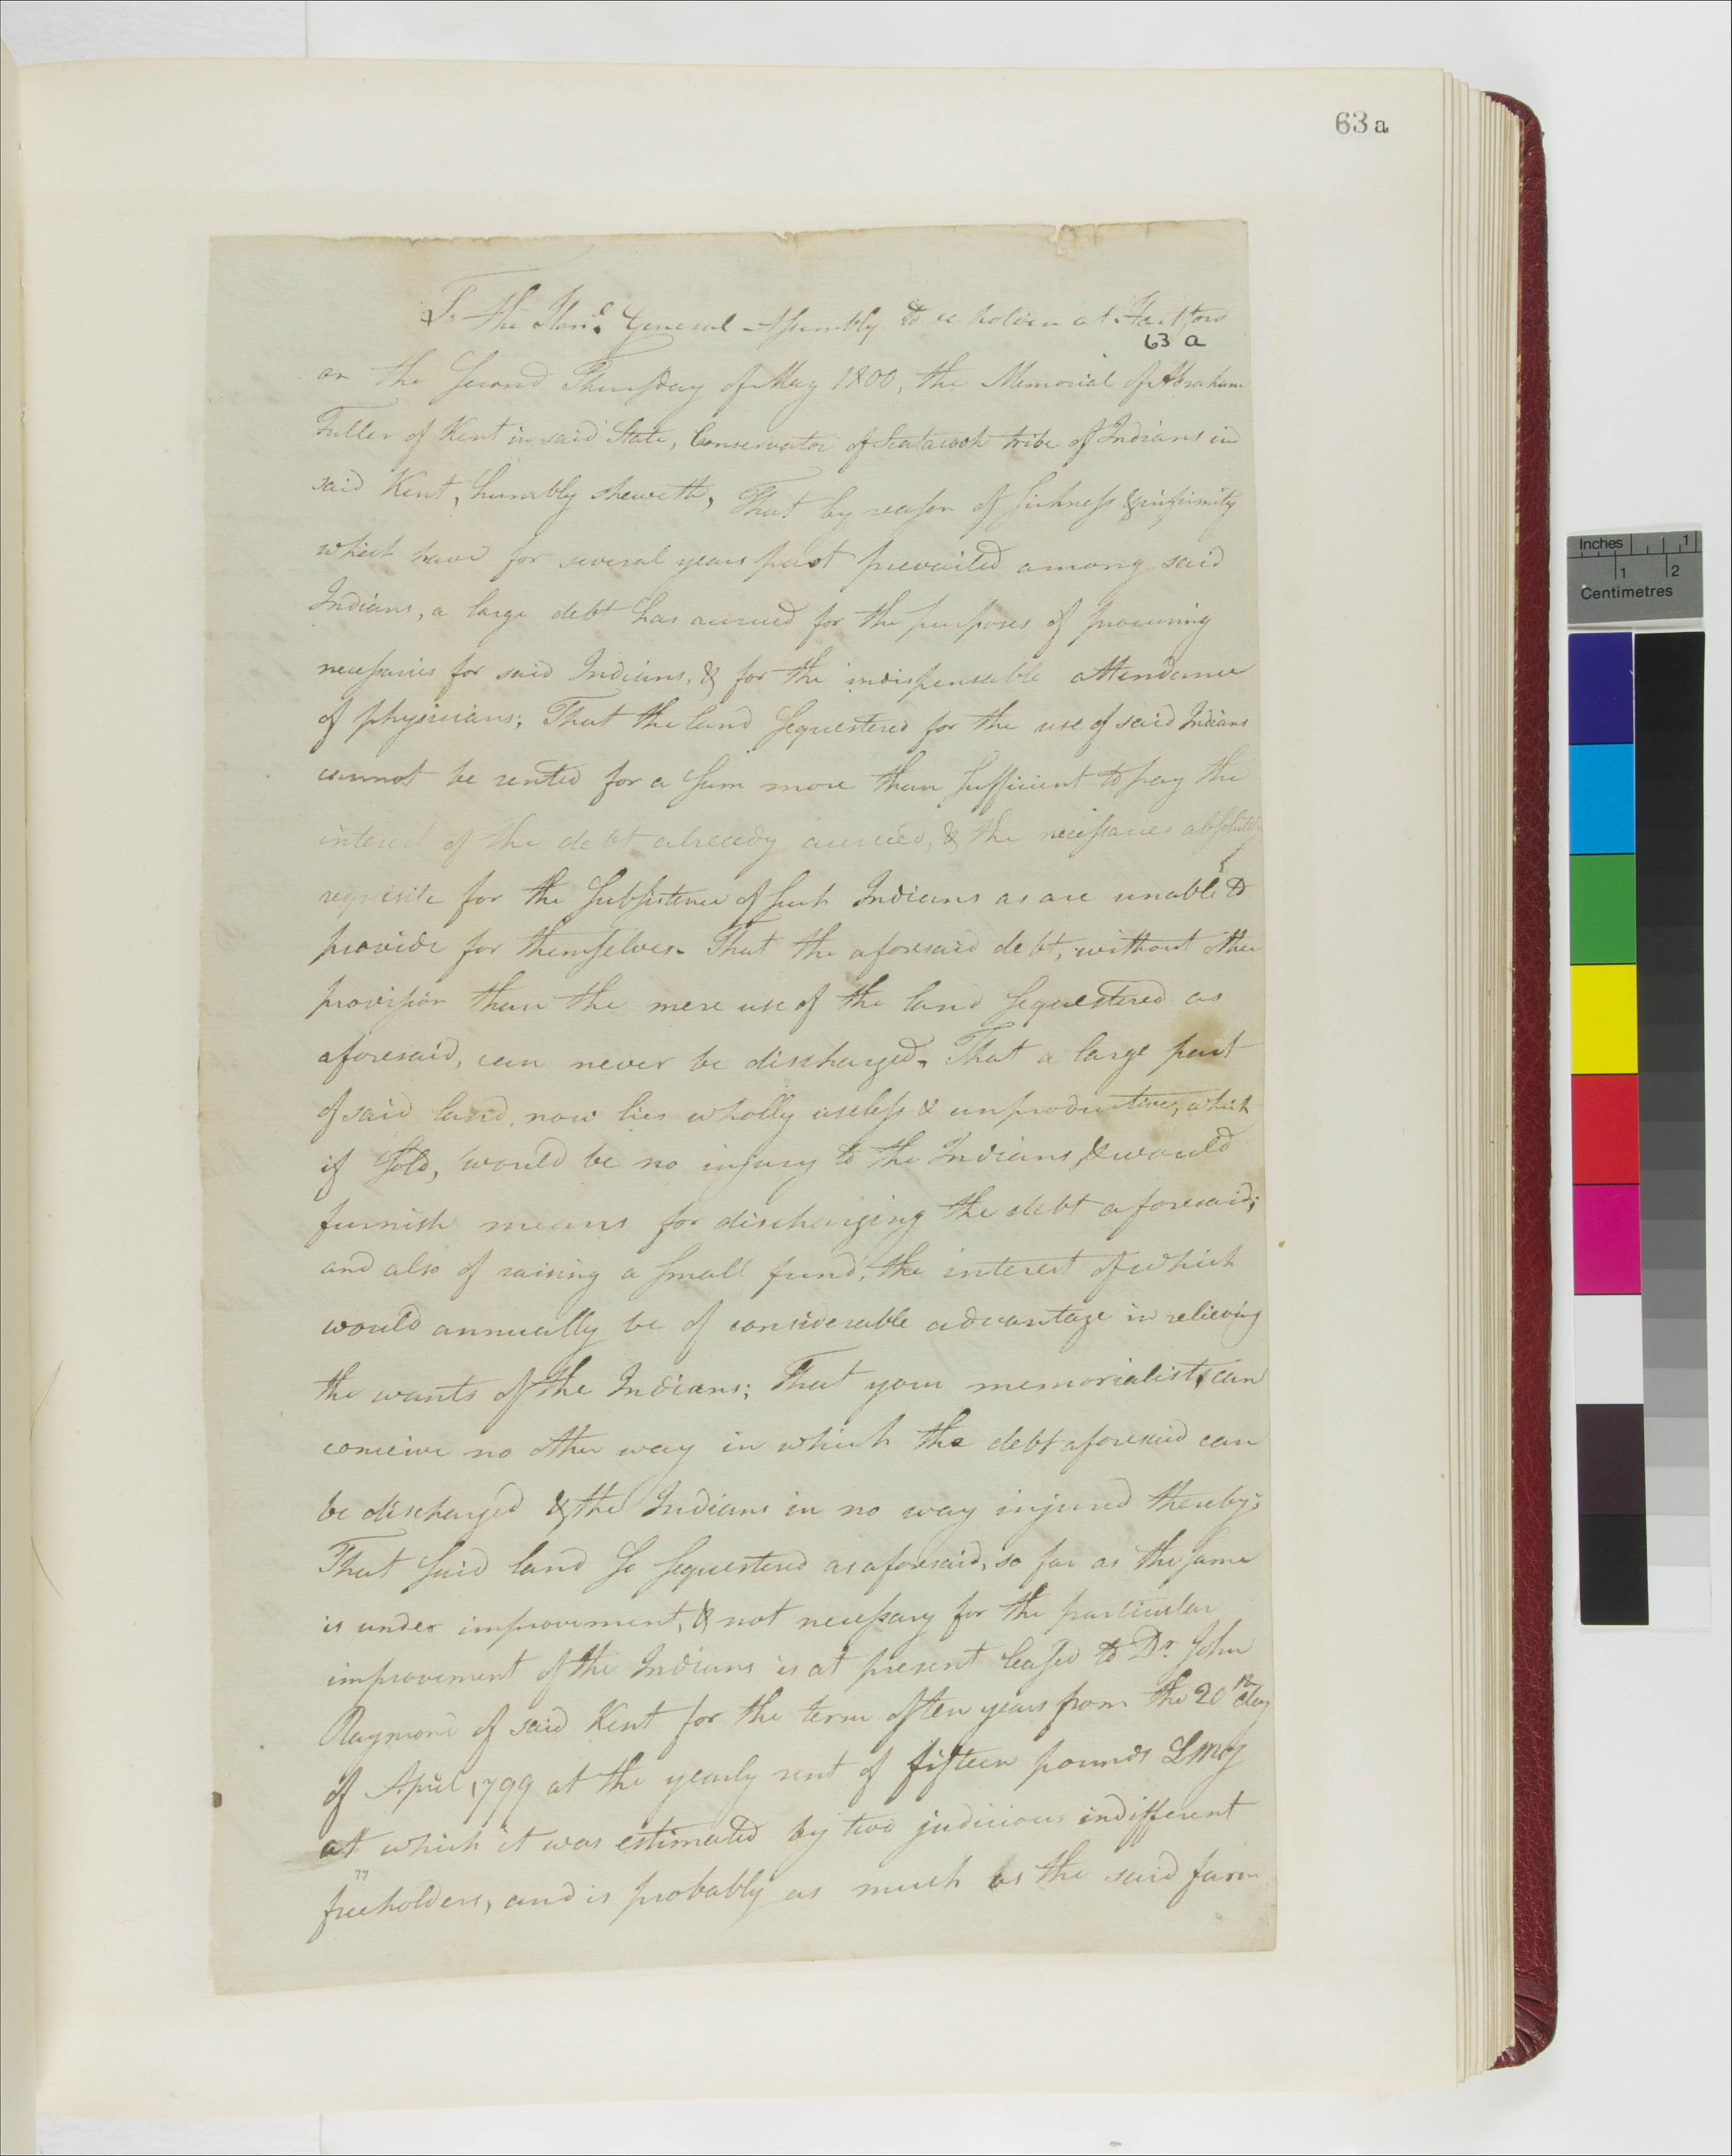 63a
To the Hon.e General Assembly to be holden at Hartford
63 a
on the second Thursday of May 1800, the Memorial of Abraham
Fuller of Kent in said State, Conservator of Scatacook tribe of Indians in
said Kent, humbly sheweth, That by reason of sickness & infirmity
which have for several years past prevailed among said
Indians, a large debt has accrued for the purposes of procuring
necessaries for said Indians, & for the indispensable attendance
of physicians; That the land sequestered for the use of said Indians
cannot be rented for a sum more than sufficient to pay the
interest of the debt already accrued, & the necessaries absolutely
requisite for the subsistence of such Indians as are unable to
provide for themselves. That the aforesaid debt, without other
provision than the mere use of the land sequestered as
aforesaid, can never be discharged. That a large part
of said land, now lies wholly useless & unproductive, which
if sold, would be no injury to the Indians, & would
furnish means for discharging the debt aforesaid;
and also of raising a small fund, the interest of which
would annually be of considerable advantage in relieving
the wants of the Indians; That your memorialist can
conceive no other way in which the debt aforesaid can
be discharged & the Indians in no way injured thereby;
That said land so sequestered as aforesaid, so far as the same
is under improvement, & not necessary for the particular
improvement of the Indians is at present leased to Dr. John
Raymond of said Kent for the term of ten years from the 20th day
of April 1799 at the yearly rent of fifteen pounds LMoy
at which it was estimated by two judicious indifferent
freeholders, and is probably as much as the said farm
Inches 1
1 2
Centimetres